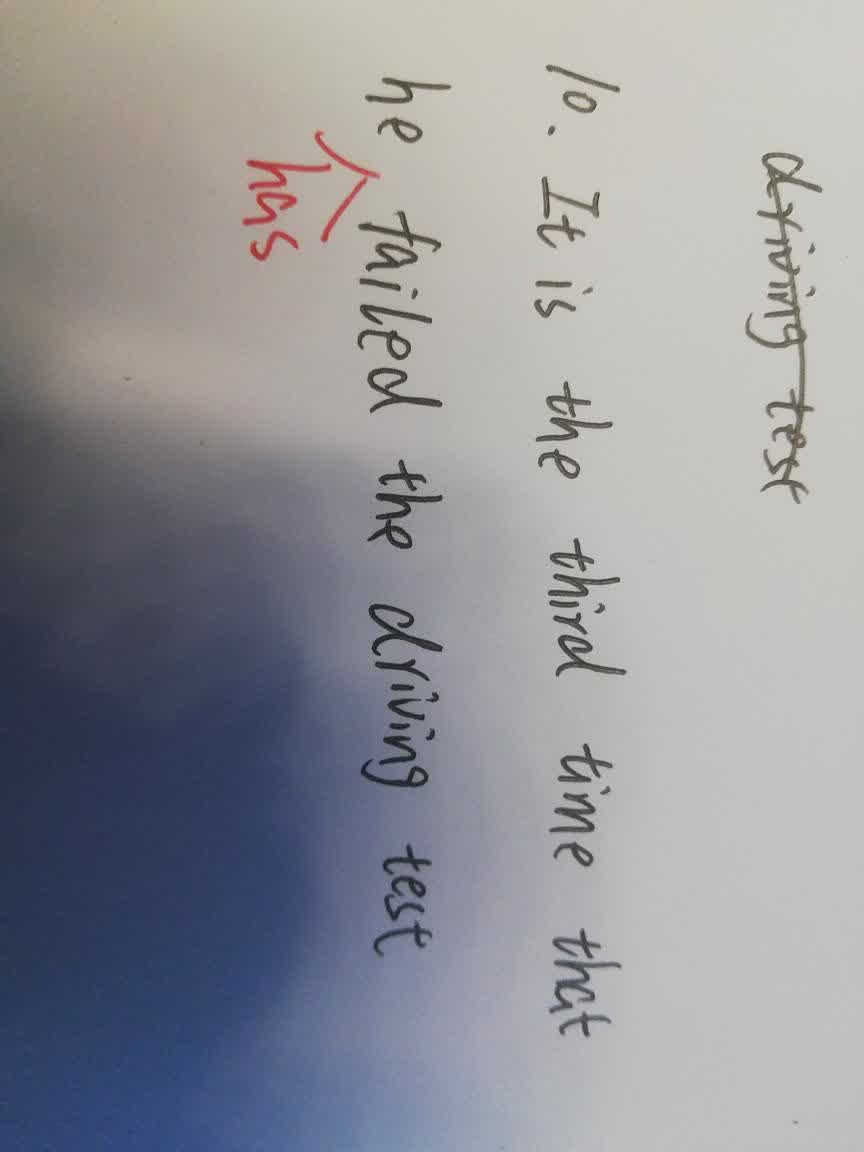 driving test
10. It is the third time that
he failed the driving test
has